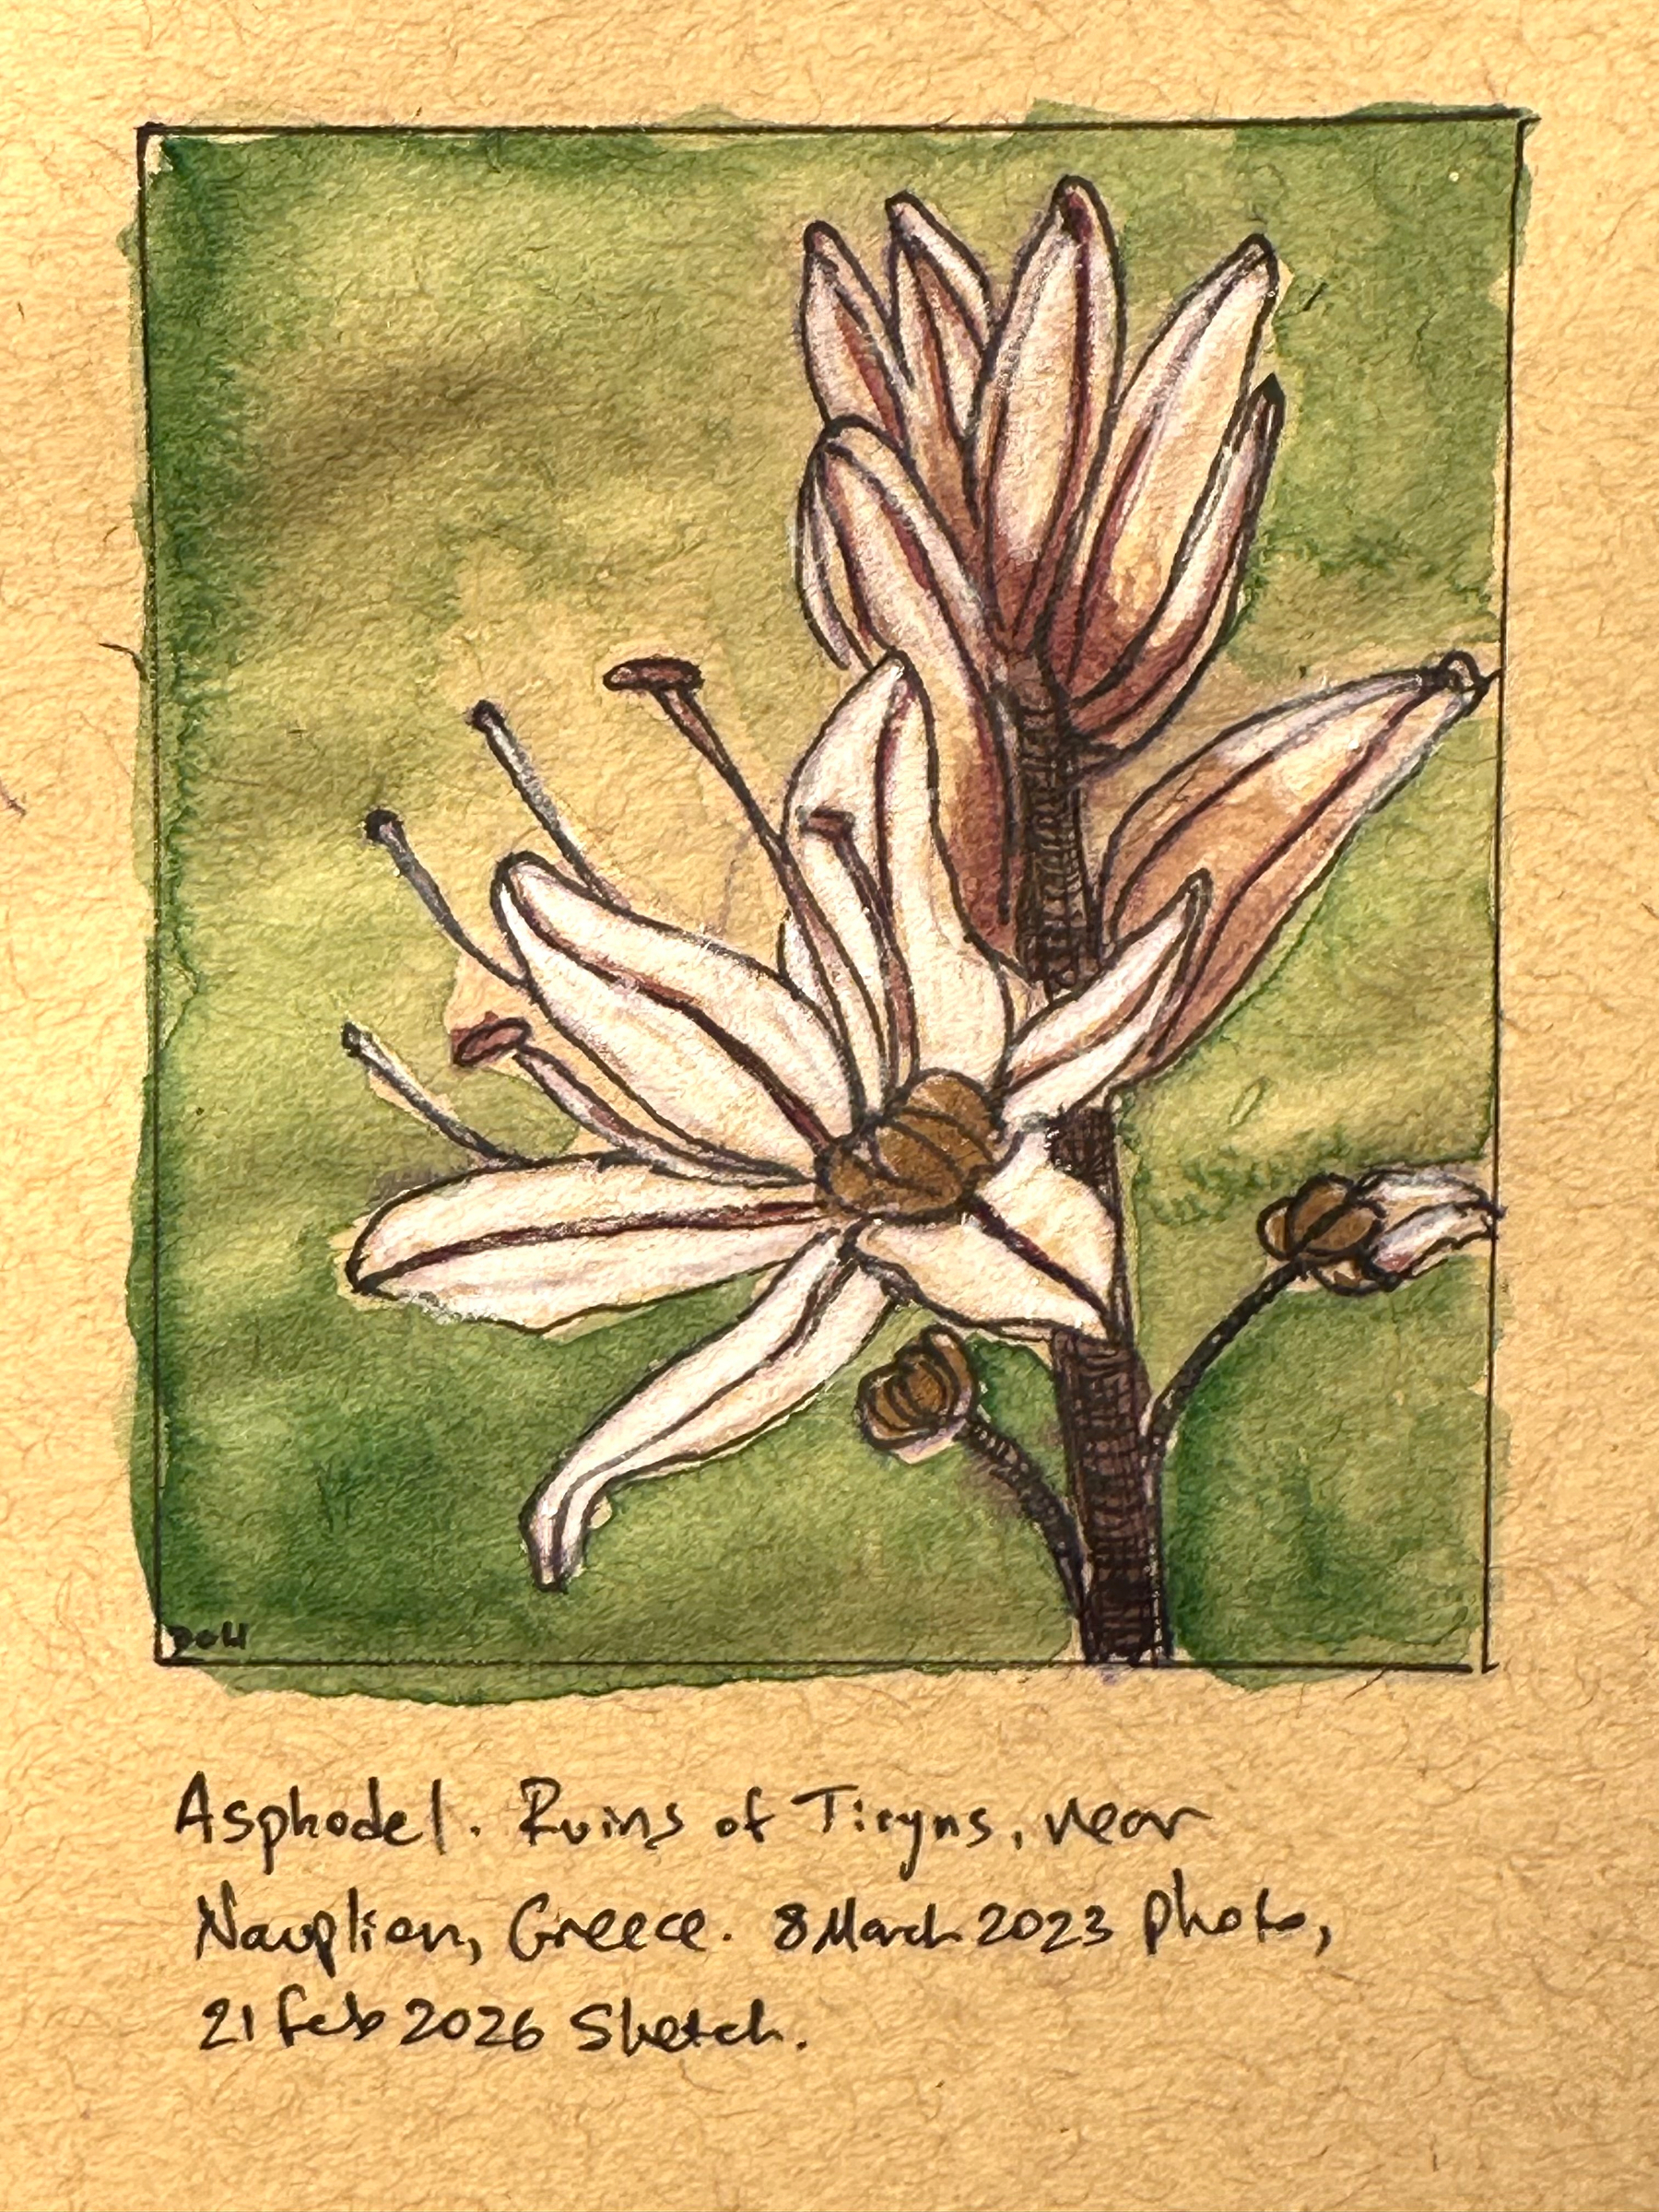 DOH
Asphodel. Ruins of Tiryns, near
Nauplion, Greece. 8 March 2023 photo,
21 Feb 2026 Sketch.